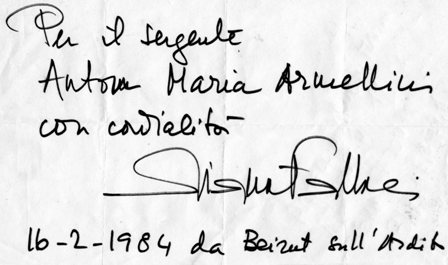 Per il sergente
Antom Maria Armellini
con cordialità
Oriana Fallaci
16-2-1984 da Beirut sull'Ardito